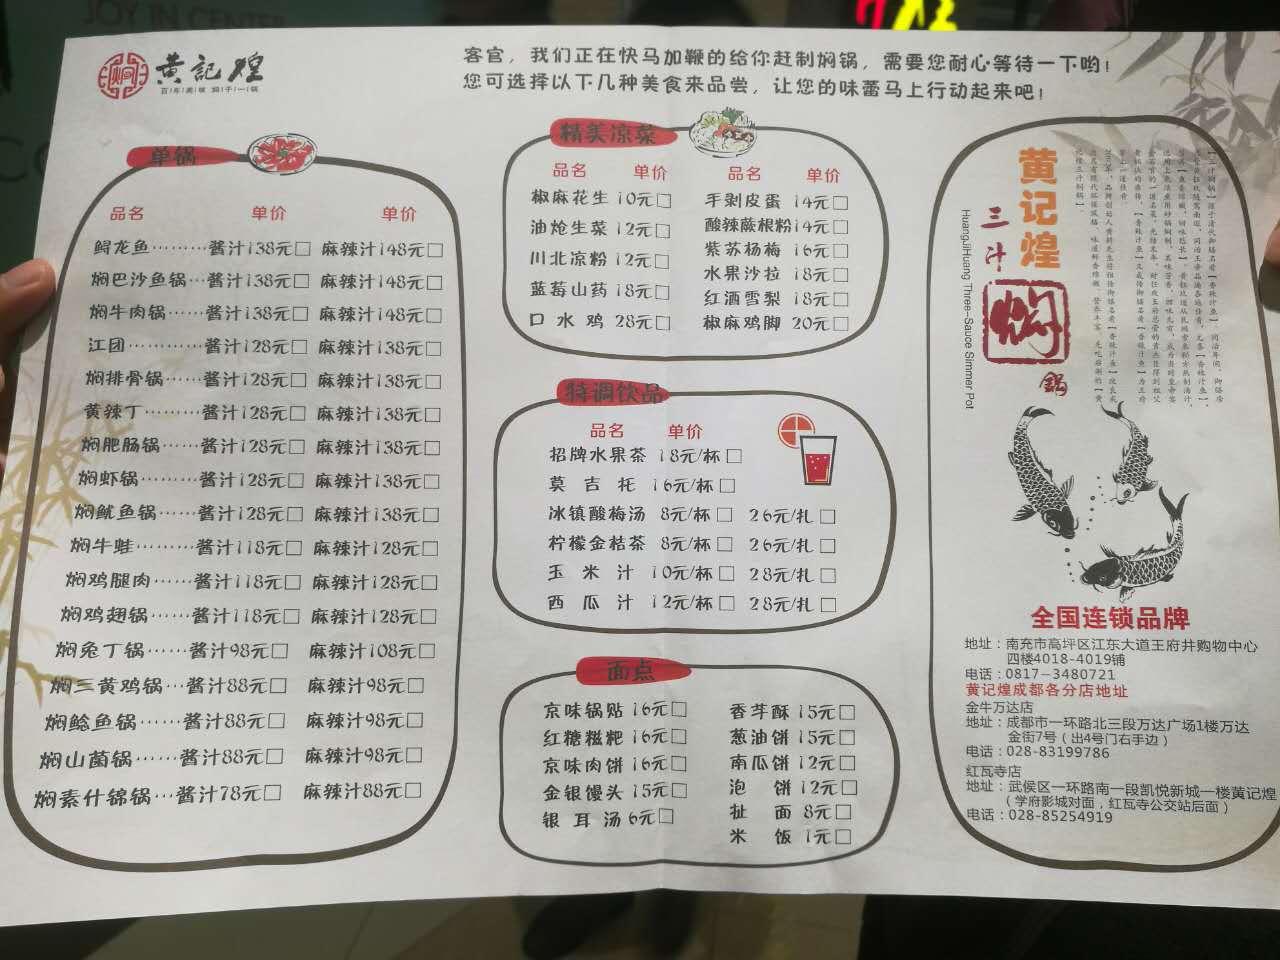 JOY IN CENTER
黄記煌
百年美味 焖于一锅
客官，我们正在快马加鞭的给你赶制焖锅，需要您耐心等待一下哟！
您可选择以下几种美食来品尝，让您的味蕾马上行动起来吧！
单锅
品名 单价 单价
鲟龙鱼………酱汁138元□ 麻辣汁148元□
焖巴沙鱼锅…酱汁138元□ 麻辣汁148元□
焖牛肉锅……酱汁138元□ 麻辣汁148元□
江团…………酱汁128元□ 麻辣汁138元□
焖排骨锅……酱汁128元□ 麻辣汁138元□
黄辣丁………酱汁128元□ 麻辣汁138元□
焖肥肠锅……酱汁128元□ 麻辣汁138元□
焖虾锅………酱汁128元□ 麻辣汁138元□
焖鱿鱼锅……酱汁128元□ 麻辣汁138元□
焖牛蛙………酱汁118元□ 麻辣汁128元□
焖鸡腿肉……酱汁118元□ 麻辣汁128元□
焖鸡翅锅……酱汁118元□ 麻辣汁128元□
焖兔丁锅……酱汁98元□ 麻辣汁108元□
焖三黄鸡锅…酱汁88元□ 麻辣汁98元□
焖鲶鱼锅……酱汁88元□ 麻辣汁98元□
焖山菌锅……酱汁88元□ 麻辣汁98元□
焖素什锦锅…酱汁78元□ 麻辣汁88元□
精美凉菜
品名 单价 品名 单价
椒麻花生 10元□ 手剥皮蛋 14元□
油炝生菜 12元□ 酸辣蕨根粉14元□
川北凉粉 12元□ 紫苏杨梅 16元□
蓝莓山药 18元□ 水果沙拉 18元□
口水鸡 28元□ 红酒雪梨 18元□
椒麻鸡脚 20元□
特调饮品
品名 单价
招牌水果茶 18元/杯□
莫吉托 16元/杯□
冰镇酸梅汤 8元/杯□ 26元/扎□
柠檬金桔茶 8元/杯□ 26元/扎□
玉米汁 10元/杯□ 28元/扎□
西瓜汁 12元/杯□ 28元/扎□
面点
京味锅贴 16元□ 香芋酥 15元□
红糖糍粑 16元□ 葱油饼 15元□
京味肉饼 16元□ 南瓜饼 12元□
金银馒头 15元□ 泡饼 12元□
银耳汤 6元□ 扯面 8元□
米饭 1元□
黄记煌
三汁
焖
鍋
HuangJiHuang Three-Sauce Simmer Pot
全国连锁品牌
地址：南充市高坪区江东大道王府井购物中心
四楼4018-4019铺
电话：0817-3480721
黄记煌成都各分店地址
金牛万达店
地址：成都市一环路北三段万达广场1楼万达
金街7号（出4号门右手边）
电话：028-83199786
红瓦寺店
地址：武侯区一环路南一段凯悦新城一楼黄记煌
（学府影城对面，红瓦寺公交站后面）
电话：028-85254919